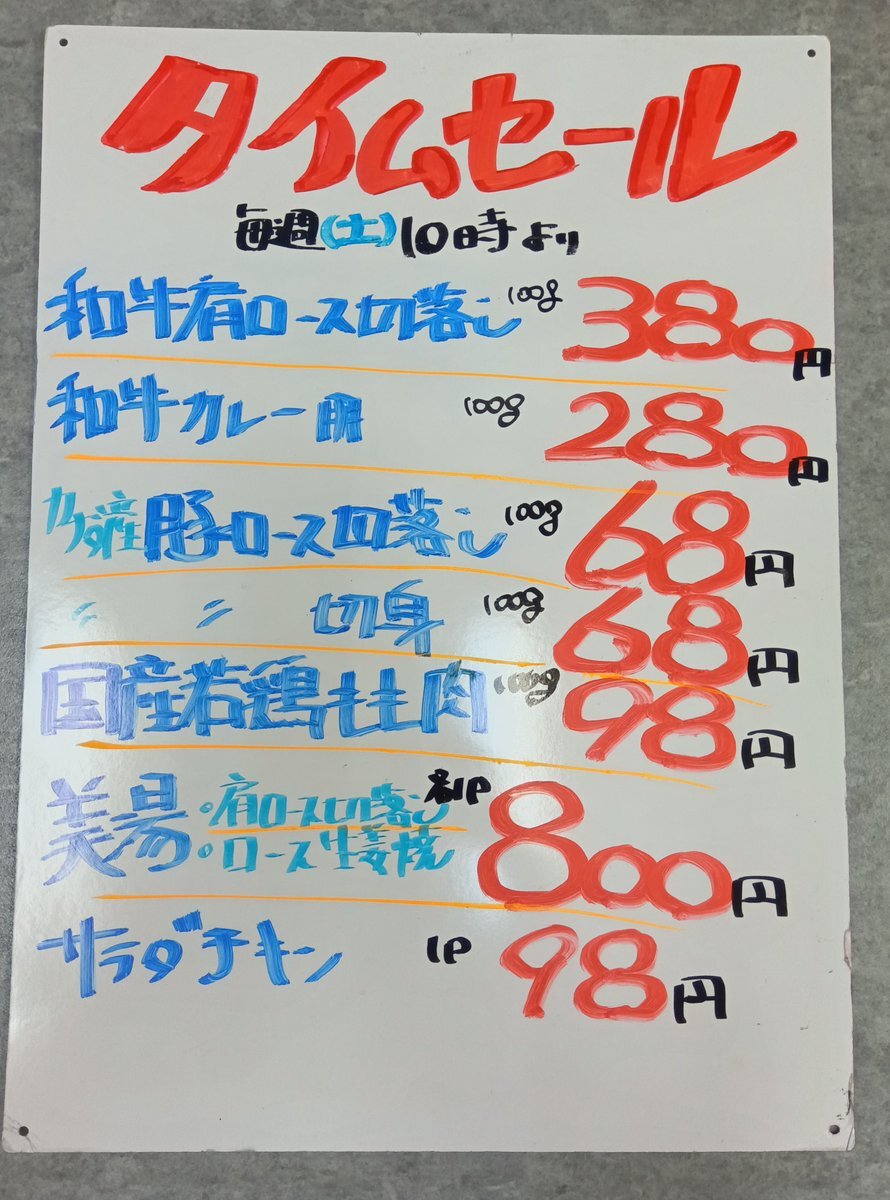 タイムセール
毎週(土)10時より
和牛肩ロース切落し 100g 380円
和牛カレー用 100g 280円
カナダ産豚ロース切落し 100g 68円
〃 〃 切身 100g 68円
国産若鶏もも肉 100g 98円
美湯 ・肩ロース切落し 各1P 800円
・ロース生姜焼
サラダチキン 1P 98円